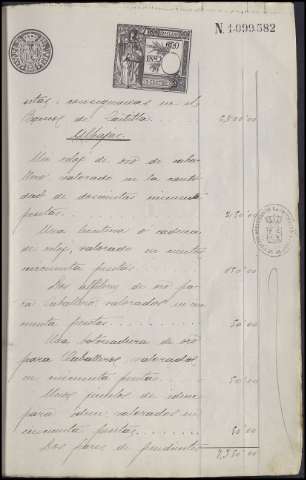 N. 1.099.582
consignadas en el
Banco de Castilla
Alhajas
Un reloj de oro de caba-
llero valorado en la canti-
dad de doscientas cincuenta
pesetas 250'00
Una leontina o cadena
de reloj, valorado en ciento
cincuenta pesetas 150'00
Dos alfileres de oro pa-
ra caballero, valorados en cin-
cuenta pesetas 50'00
Una botonadura de oro
para Caballero, valorados
en cincuenta pesetas 50'00
Unos gemelos de idem
para idem, valorados en
cincuenta pesetas 50'00
Dos pares de pendientes